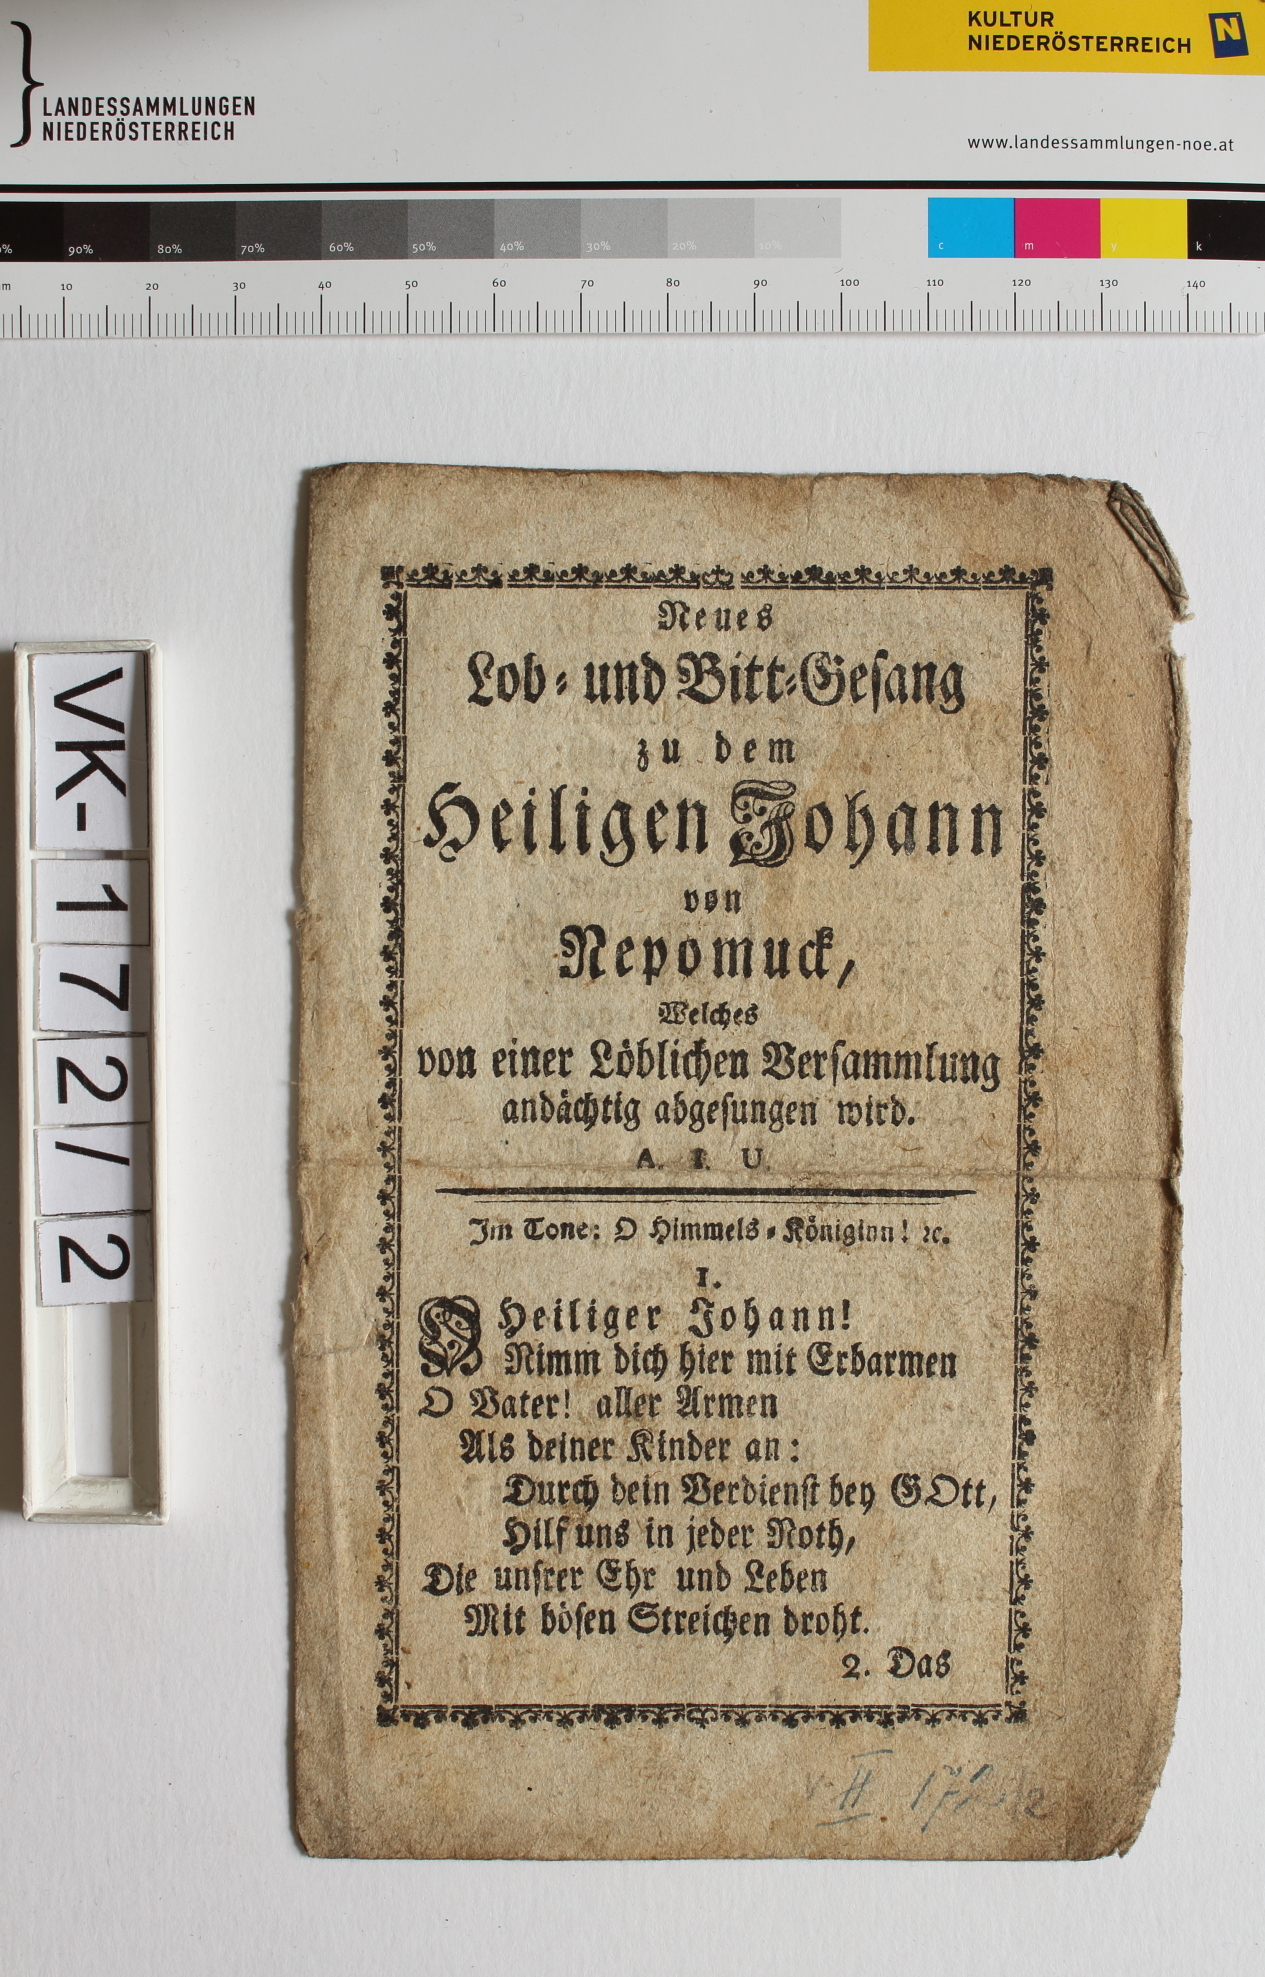 KULTUR
NIEDERÖSTERREICH
N
LANDESSAMMLUNGEN
NIEDERÖSTERREICH
www.landessammlungen-noe.at
90% 80% 70% 60% 50% 40% 30% 20% 10% c m y k
10 20 30 40 50 60 70 80 90 100 110 120 130 140
VK-172/2
Neues
Lob- und Bitt-Gesang
zu dem
Heiligen Johann
von
Nepomuck,
Welches
von einer Löblichen Versammlung
andächtig abgesungen wird.
A. I. U.
Im Tone: O Himmels-Königinn! ꝛc.
1.
O Heiliger Johann!
Nimm dich hier mit Erbarmen
O Vater! aller Armen
Als deiner Kinder an:
Durch dein Verdienst bey GOtt,
Hilf uns in jeder Noth,
Die unsrer Ehr und Leben
Mit bösen Streichen droht.
2. Das
II. 172/2